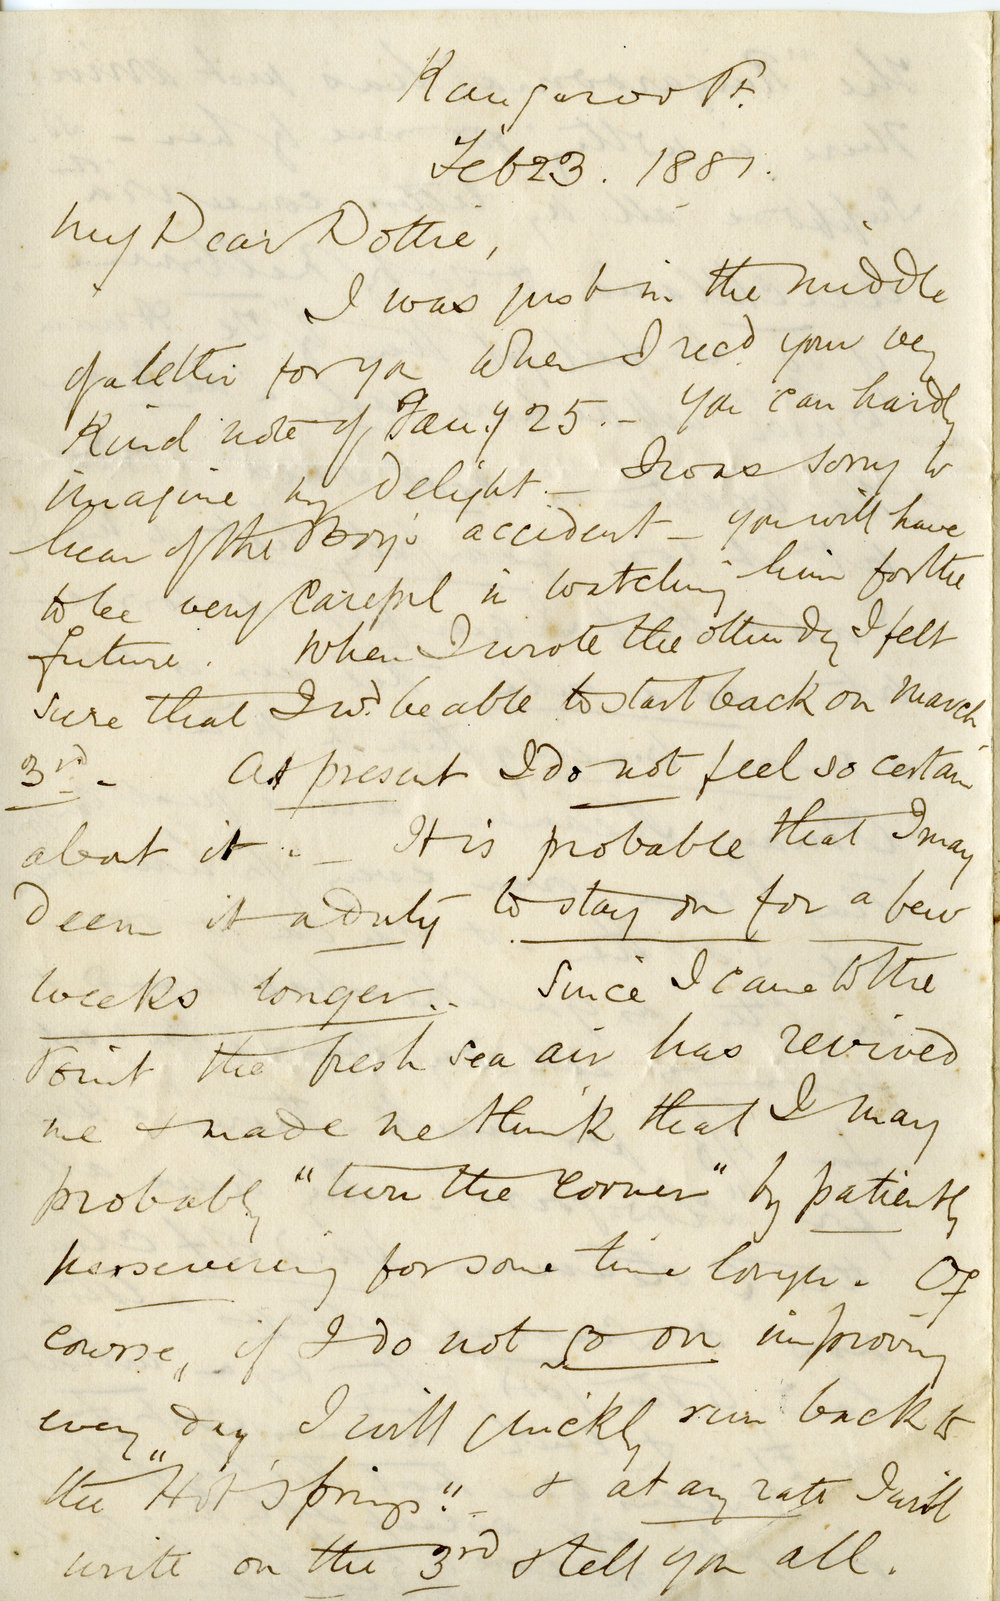 Kangaroo Pt.
Feb 23. 1881.
My Dear Dottie,
I was just in the middle
of a letter for you when I recd your very
kind note of Jany 25. – you can hardly
imagine my delight – I was sorry to
hear of the Boy's accident – you will have
to be very careful in watching him for the
future. When I wrote the other day I felt
sure that I wd. be able to start back on March
3rd. – At present I do not feel so certain
about it. – It is probable that I may
deem it a duty to stay on for a few
weeks longer. Since I came to the
Point the fresh sea air has revived
me & made me think that I may
probably "turn the corner" by patiently
persevering for some time longer. Of
course, if I do not go on improving
every day I will quickly run back to
the "Hot Springs". – & at any rate I will
write on the 3rd & tell you all.